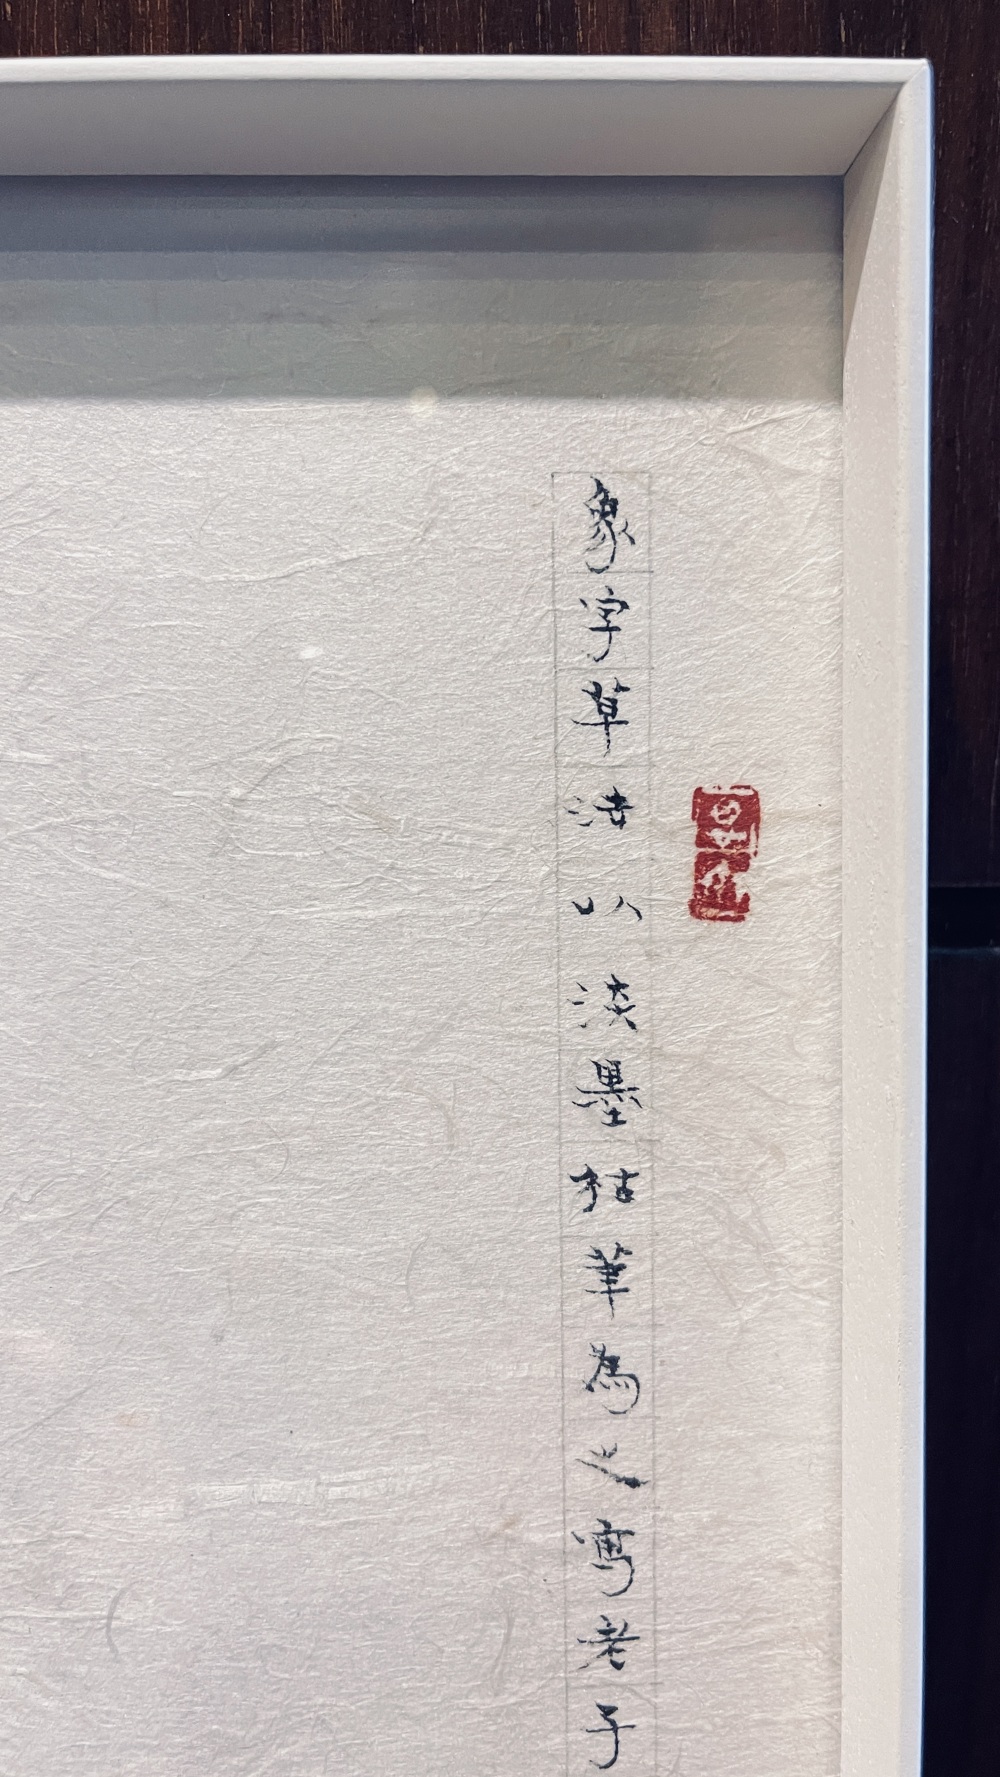 象字草法以淡墨枯筆為之寫老子